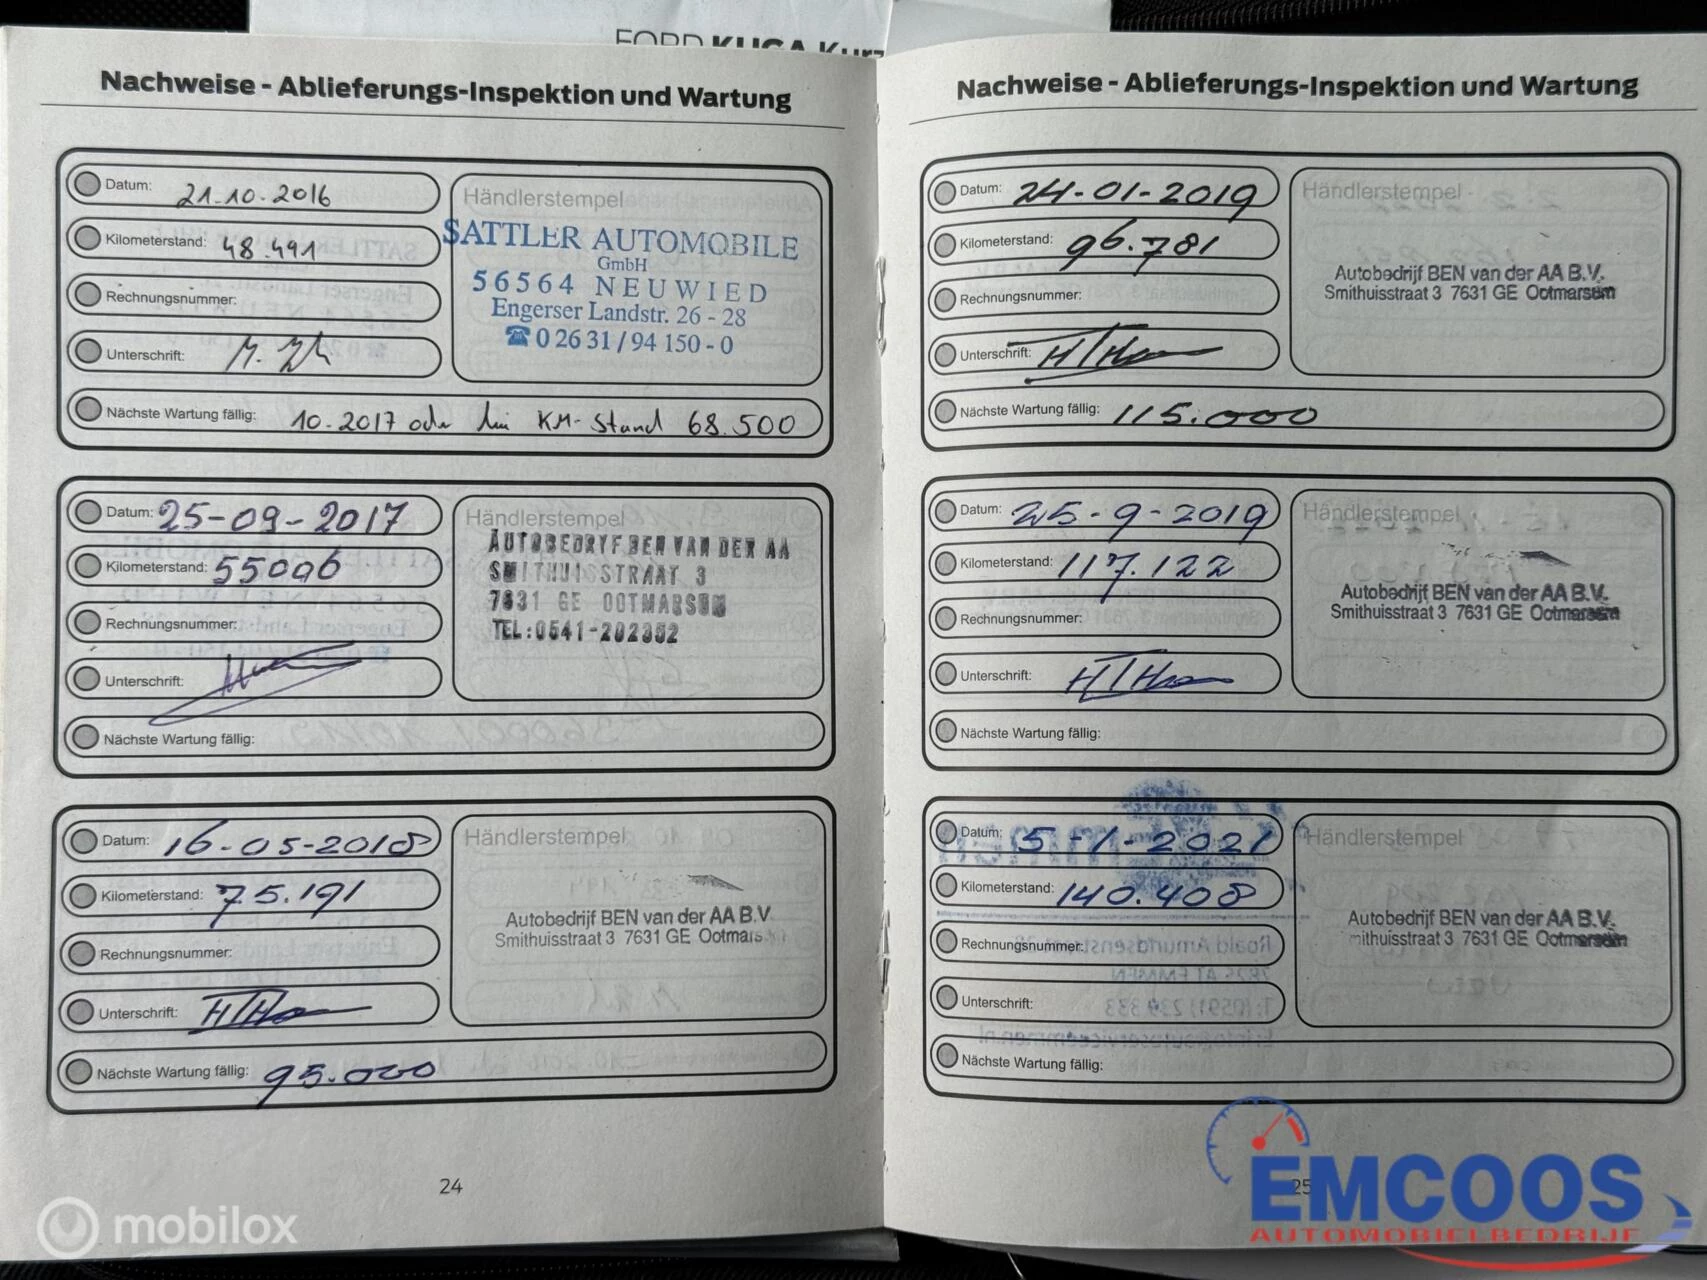 FORD KUGA Kurz
Nachweise - Ablieferungs-Inspektion und Wartung
Datum: 21.10.2016
Kilometerstand: 48.491
Rechnungsnummer:
Unterschrift:
Händlerstempel
SATTLER AUTOMOBILE
GmbH
56564 NEUWIED
Engerser Landstr. 26 - 28
☎ 0 26 31 / 94 150 - 0
Nächste Wartung fällig: 10.2017 oder bei KM-Stand 68.500
Datum: 25-09-2017
Kilometerstand: 55096
Rechnungsnummer:
Unterschrift:
Händlerstempel
AUTOBEDRYF BEN VAN DER AA
SMITHUISSTRAAT 3
7631 GE OOTMARSUM
TEL:0541-202352
Nächste Wartung fällig:
Datum: 16-05-2018
Kilometerstand: 75.191
Rechnungsnummer:
Unterschrift:
Händlerstempel
Autobedrijf BEN van der AA B.V.
Smithuisstraat 3 7631 GE Ootmarsum
Nächste Wartung fällig: 95.000
24
Nachweise - Ablieferungs-Inspektion und Wartung
Datum: 24-01-2019
Kilometerstand: 96.781
Rechnungsnummer:
Unterschrift:
Händlerstempel
Autobedrijf BEN van der AA B.V.
Smithuisstraat 3 7631 GE Ootmarsum
Nächste Wartung fällig: 115.000
Datum: 25-9-2019
Kilometerstand: 117.122
Rechnungsnummer:
Unterschrift:
Händlerstempel
Autobedrijf BEN van der AA B.V.
Smithuisstraat 3 7631 GE Ootmarsum
Nächste Wartung fällig:
Datum: 5-1-2021
Kilometerstand: 140.408
Rechnungsnummer:
Unterschrift:
Händlerstempel
Autobedrijf BEN van der AA B.V.
Smithuisstraat 3 7631 GE Ootmarsum
Nächste Wartung fällig:
25
mobilox
EMCOOS
AUTOMOBIELBEDRIJF